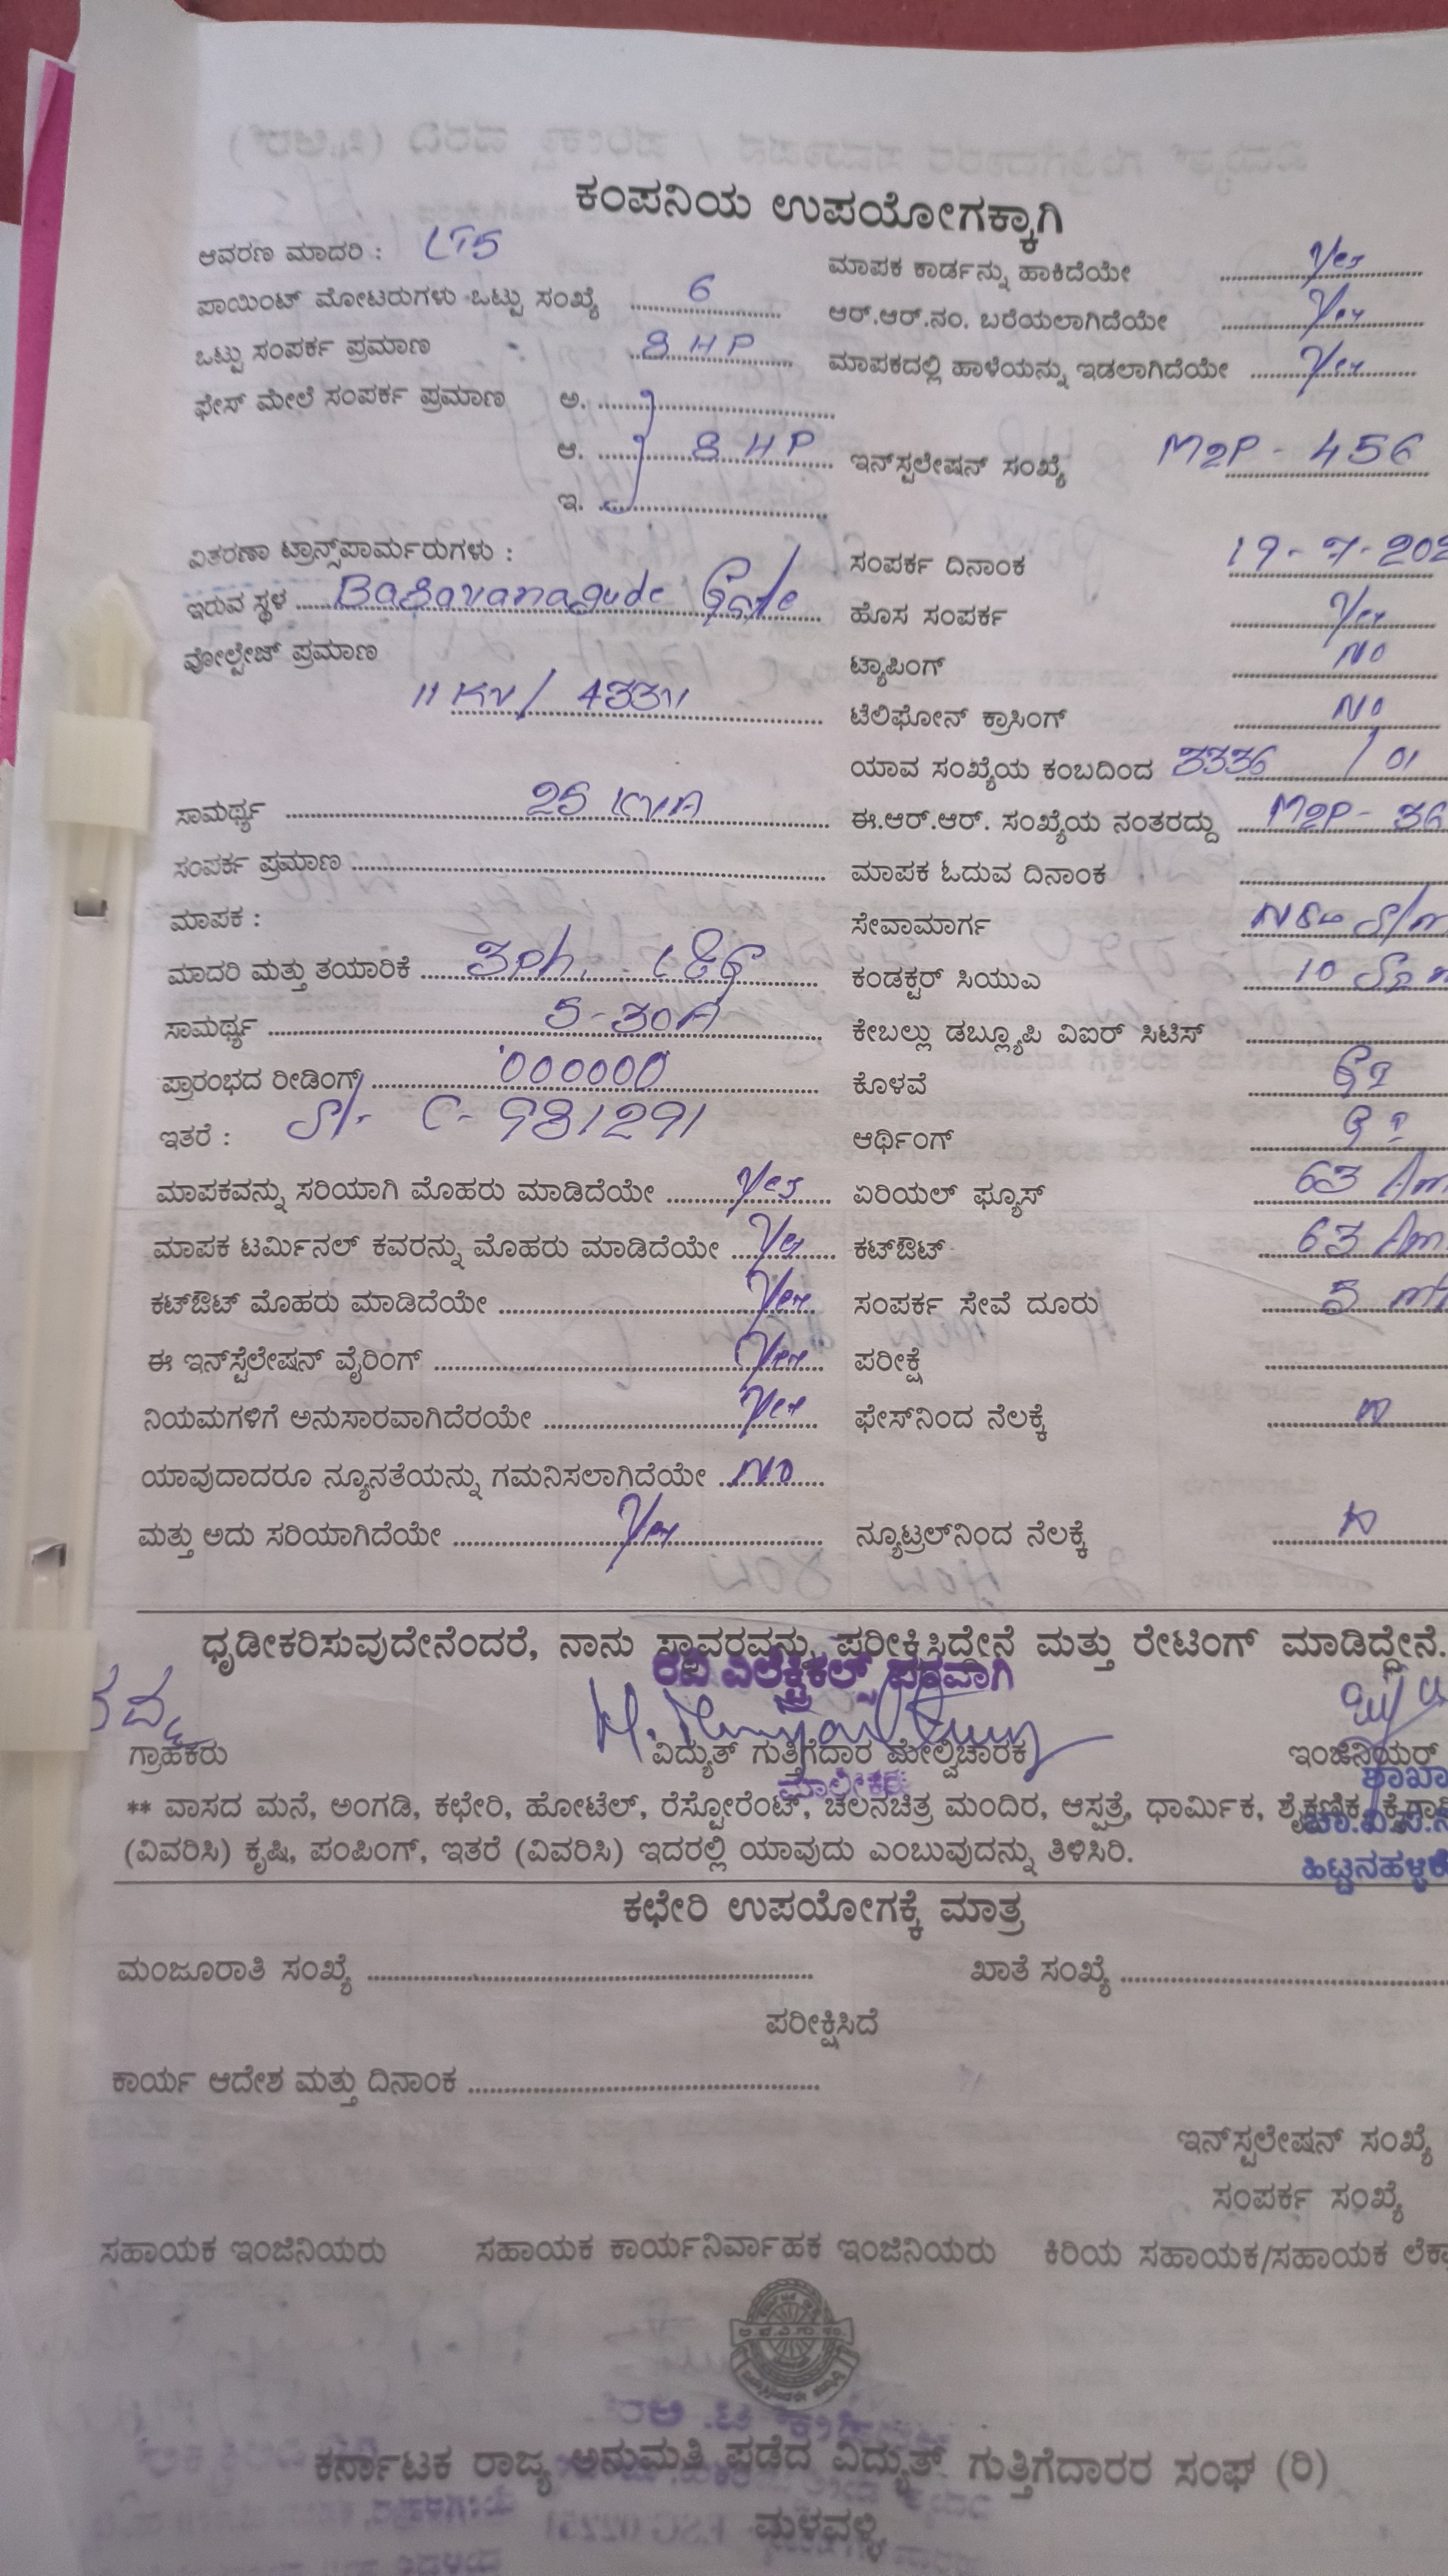 ಕಂಪನಿಯ ಉಪಯೋಗಕ್ಕಾಗಿ
ಆವರಣ ಮಾದರಿ : LT5
ಮಾಪಕ ಕಾರ್ಡನ್ನು ಹಾಕಿದೆಯೇ Yes
ಪಾಯಿಂಟ್ ಮೋಟರುಗಳು ಒಟ್ಟು ಸಂಖ್ಯೆ 6
ಆರ್.ಆರ್.ನಂ. ಬರೆಯಲಾಗಿದೆಯೇ Yes
ಒಟ್ಟು ಸಂಪರ್ಕ ಪ್ರಮಾಣ : 8 HP
ಮಾಪಕದಲ್ಲಿ ಹಾಳೆಯನ್ನು ಇಡಲಾಗಿದೆಯೇ Yes
ಫೇಸ್ ಮೇಲೆ ಸಂಪರ್ಕ ಪ್ರಮಾಣ ಅ.
ಆ. 8 HP
ಇನ್‌ಸ್ಟಲೇಷನ್ ಸಂಖ್ಯೆ M2P - 456
ಇ.
ವಿತರಣಾ ಟ್ರಾನ್ಸ್‌ಪಾರ್ಮರುಗಳು :
ಸಂಪರ್ಕ ದಿನಾಂಕ 19-7-202
ಇರುವ ಸ್ಥಳ Basavanagudi Gate
ಹೊಸ ಸಂಪರ್ಕ Yes
ವೋಲ್ಟೇಜ್ ಪ್ರಮಾಣ
ಟ್ಯಾಪಿಂಗ್ NO
11 KV/ 433V
ಟೆಲಿಫೋನ್ ಕ್ರಾಸಿಂಗ್ NO
ಯಾವ ಸಂಖ್ಯೆಯ ಕಂಬದಿಂದ 3336 / 01
ಸಾಮರ್ಥ್ಯ 25 KVA
ಈ.ಆರ್.ಆರ್. ಸಂಖ್ಯೆಯ ನಂತರದ್ದು M2P - 36
ಸಂಪರ್ಕ ಪ್ರಮಾಣ
ಮಾಪಕ ಓದುವ ದಿನಾಂಕ
ಮಾಪಕ :
ಸೇವಾಮಾರ್ಗ
ಮಾದರಿ ಮತ್ತು ತಯಾರಿಕೆ 3ph. L&G
ಕಂಡಕ್ಟರ್ ಸಿಯುಎ 10
ಸಾಮರ್ಥ್ಯ 5-30A
ಕೇಬಲ್ಲು ಡಬ್ಲ್ಯೂಪಿ ವಿಐರ್ ಸಿಟಿಸ್
ಪ್ರಾರಂಭದ ರೀಡಿಂಗ್ 000000
ಕೊಳವೆ GI
ಇತರೆ : Sl- C- 981291
ಆರ್ಥಿಂಗ್ GI
ಮಾಪಕವನ್ನು ಸರಿಯಾಗಿ ಮೊಹರು ಮಾಡಿದೆಯೇ Yes
ಏರಿಯಲ್ ಫ್ಯೂಸ್ 63 Am
ಮಾಪಕ ಟರ್ಮಿನಲ್ ಕವರನ್ನು ಮೊಹರು ಮಾಡಿದೆಯೇ Yes
ಕಟ್‌ಔಟ್ 63 Am
ಕಟ್‌ಔಟ್ ಮೊಹರು ಮಾಡಿದೆಯೇ Yes
ಸಂಪರ್ಕ ಸೇವೆ ದೂರು 5 mt
ಈ ಇನ್‌ಸ್ಟೆಲೇಷನ್ ವೈರಿಂಗ್ Yes
ಪರೀಕ್ಷೆ
ನಿಯಮಗಳಿಗೆ ಅನುಸಾರವಾಗಿದೆರಯೇ Yes
ಫೇಸ್‌ನಿಂದ ನೆಲಕ್ಕೆ
ಯಾವುದಾದರೂ ನ್ಯೂನತೆಯನ್ನು ಗಮನಿಸಲಾಗಿದೆಯೇ NO
ಮತ್ತು ಅದು ಸರಿಯಾಗಿದೆಯೇ Yes
ನ್ಯೂಟ್ರಲ್‌ನಿಂದ ನೆಲಕ್ಕೆ
ಧೃಡೀಕರಿಸುವುದೇನೆಂದರೆ, ನಾನು ಸ್ಥಾವರವನ್ನು ಪರೀಕ್ಷಿಸಿದ್ದೇನೆ ಮತ್ತು ರೇಟಿಂಗ್ ಮಾಡಿದ್ದೇನೆ.
ರವಿ ಎಲೆಕ್ಟ್ರಿಕಲ್ಸ್ ಪರವಾಗಿ
ಗ್ರಾಹಕರು
ವಿದ್ಯುತ್ ಗುತ್ತಿಗೆದಾರ ಮೇಲ್ವಿಚಾರಕ
ಇಂಜಿನಿಯರ್
ಮಾಲೀಕರು
ಶಾಖಾ
** ವಾಸದ ಮನೆ, ಅಂಗಡಿ, ಕಛೇರಿ, ಹೋಟೆಲ್, ರೆಸ್ಟೋರೆಂಟ್, ಚಲನಚಿತ್ರ ಮಂದಿರ, ಆಸ್ಪತ್ರೆ, ಧಾರ್ಮಿಕ, ಶೈಕ್ಷಣಿಕ,
(ವಿವರಿಸಿ) ಕೃಷಿ, ಪಂಪಿಂಗ್, ಇತರೆ (ವಿವರಿಸಿ) ಇದರಲ್ಲಿ ಯಾವುದು ಎಂಬುವುದನ್ನು ತಿಳಿಸಿರಿ.
ಕಛೇರಿ ಉಪಯೋಗಕ್ಕೆ ಮಾತ್ರ
ಮಂಜೂರಾತಿ ಸಂಖ್ಯೆ
ಖಾತೆ ಸಂಖ್ಯೆ
ಪರೀಕ್ಷಿಸಿದೆ
ಕಾರ್ಯ ಆದೇಶ ಮತ್ತು ದಿನಾಂಕ
ಇನ್‌ಸ್ಟಲೇಷನ್ ಸಂಖ್ಯೆ
ಸಂಪರ್ಕ ಸಂಖ್ಯೆ
ಸಹಾಯಕ ಇಂಜಿನಿಯರು
ಸಹಾಯಕ ಕಾರ್ಯನಿರ್ವಾಹಕ ಇಂಜಿನಿಯರು
ಕಿರಿಯ ಸಹಾಯಕ/ಸಹಾಯಕ
ಕರ್ನಾಟಕ ರಾಜ್ಯ ಅನುಮತಿ ಪಡೆದ ವಿದ್ಯುತ್ ಗುತ್ತಿಗೆದಾರರ ಸಂಘ (ರಿ)
ಮಳವಳ್ಳಿ